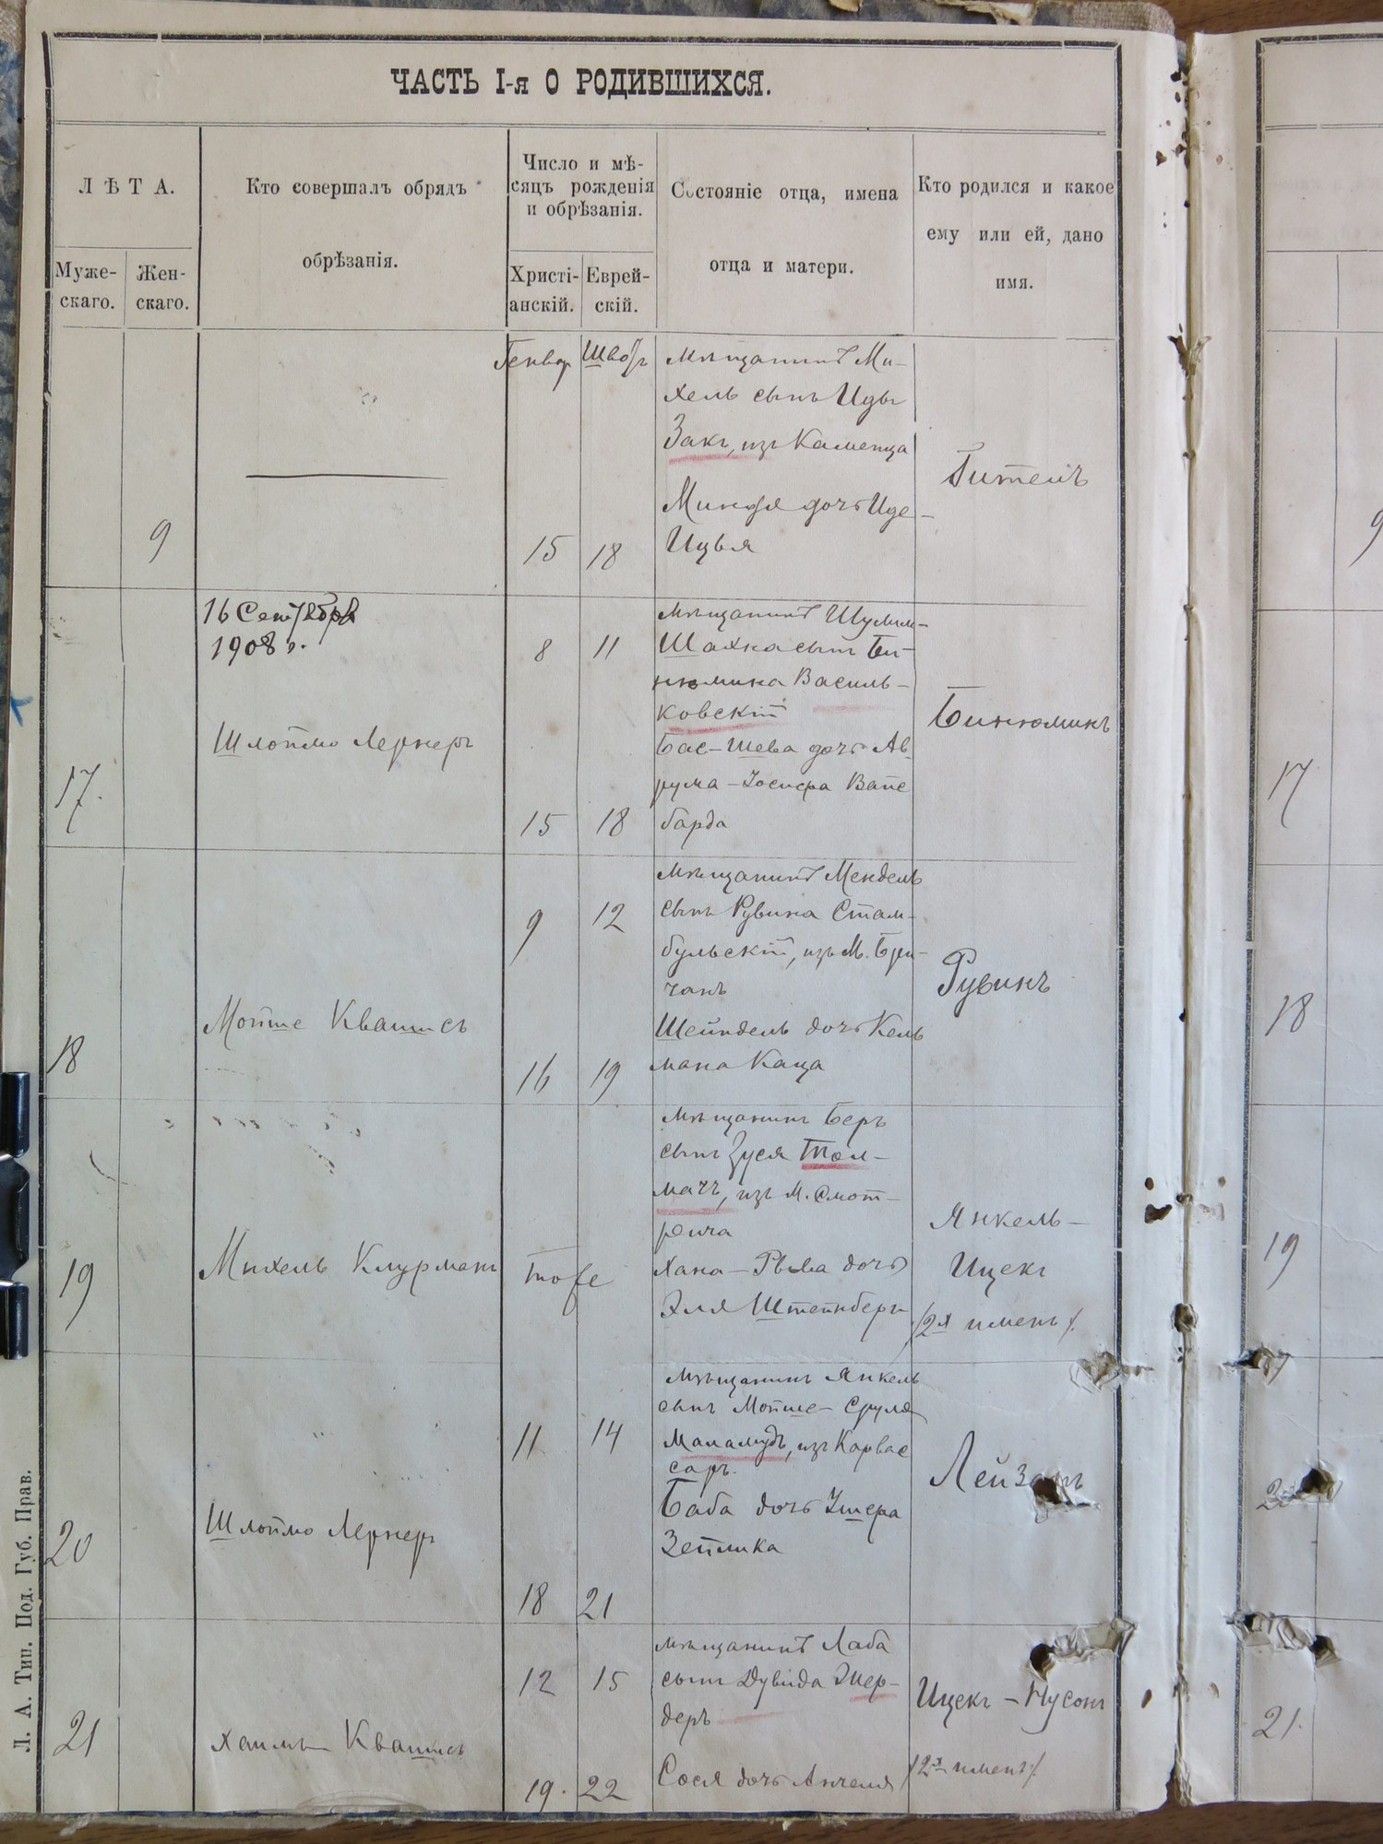 ЧАСТЬ I-я О РОДИВШИХСЯ.
ЛѢТА.
Муже-
скаго.
Жен-
скаго.
Кто совершалъ обрядъ
обрѣзанія.
Число и мѣ-
сяцъ рожденія
и обрѣзанія.
Христі-
анскій.
Еврей-
скій.
Состояніе отца, имена
отца и матери.
Кто родился и какое
ему или ей, дано
имя.
9
15
18
мѣщанинъ Ми-
хель сынъ Иды
Закъ, изъ Каменца
дочь Иде-
Гительъ
9
17.
16 Сентября
1908 г.
Шлоймо Лернеръ
8
11
15
18
мѣщанинъ Шулим-
Шахна сынъ Би-
нюмина Василь-
ковскій
Бас-Шева дочь Ав
рума-Іосифа Вайс
барда
Бинюминъ
17
18
Мойше Квашисъ
9
12
16
19
мѣщанинъ Мендель
сынъ Рувина Стам-
бульскій, изъ М. Бри-
чанъ
Шейндель дочь Кель
мана Каца
Рувинъ
18
19
Михель Клурманъ
тоже
мѣщанинъ Беръ
сынъ Зуся Тол-
мачъ, изъ М. Смот-
рича
Хана-Рыва дочь
Эля Штейнбергъ
Янкель-
Ицекъ
/2х именъ/.
19
20
Шлоймо Лернеръ
11
14
18
21
мѣщанинъ Янкель
сынъ Мойше-Сруля
Маламудъ, изъ Карвас
саръ.
Баба дочь Ушера
Зейлика
Лейзоръ
21
Хаимъ Квашисъ
12
15
19.
22
мѣщанинъ Лаба
сынъ Дувида Экер-
деръ
Сося дочь Анчеля
Ицекъ-Нусонъ
/2х именъ/
21.
Л. А. Тип. Под. Губ. Прав.